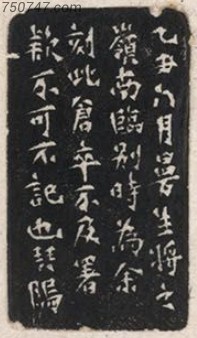 750747.com
乙丑八月曼生將之
嶺南臨別時為余
刻此倉卒不及署
欵不可不記也琴隖